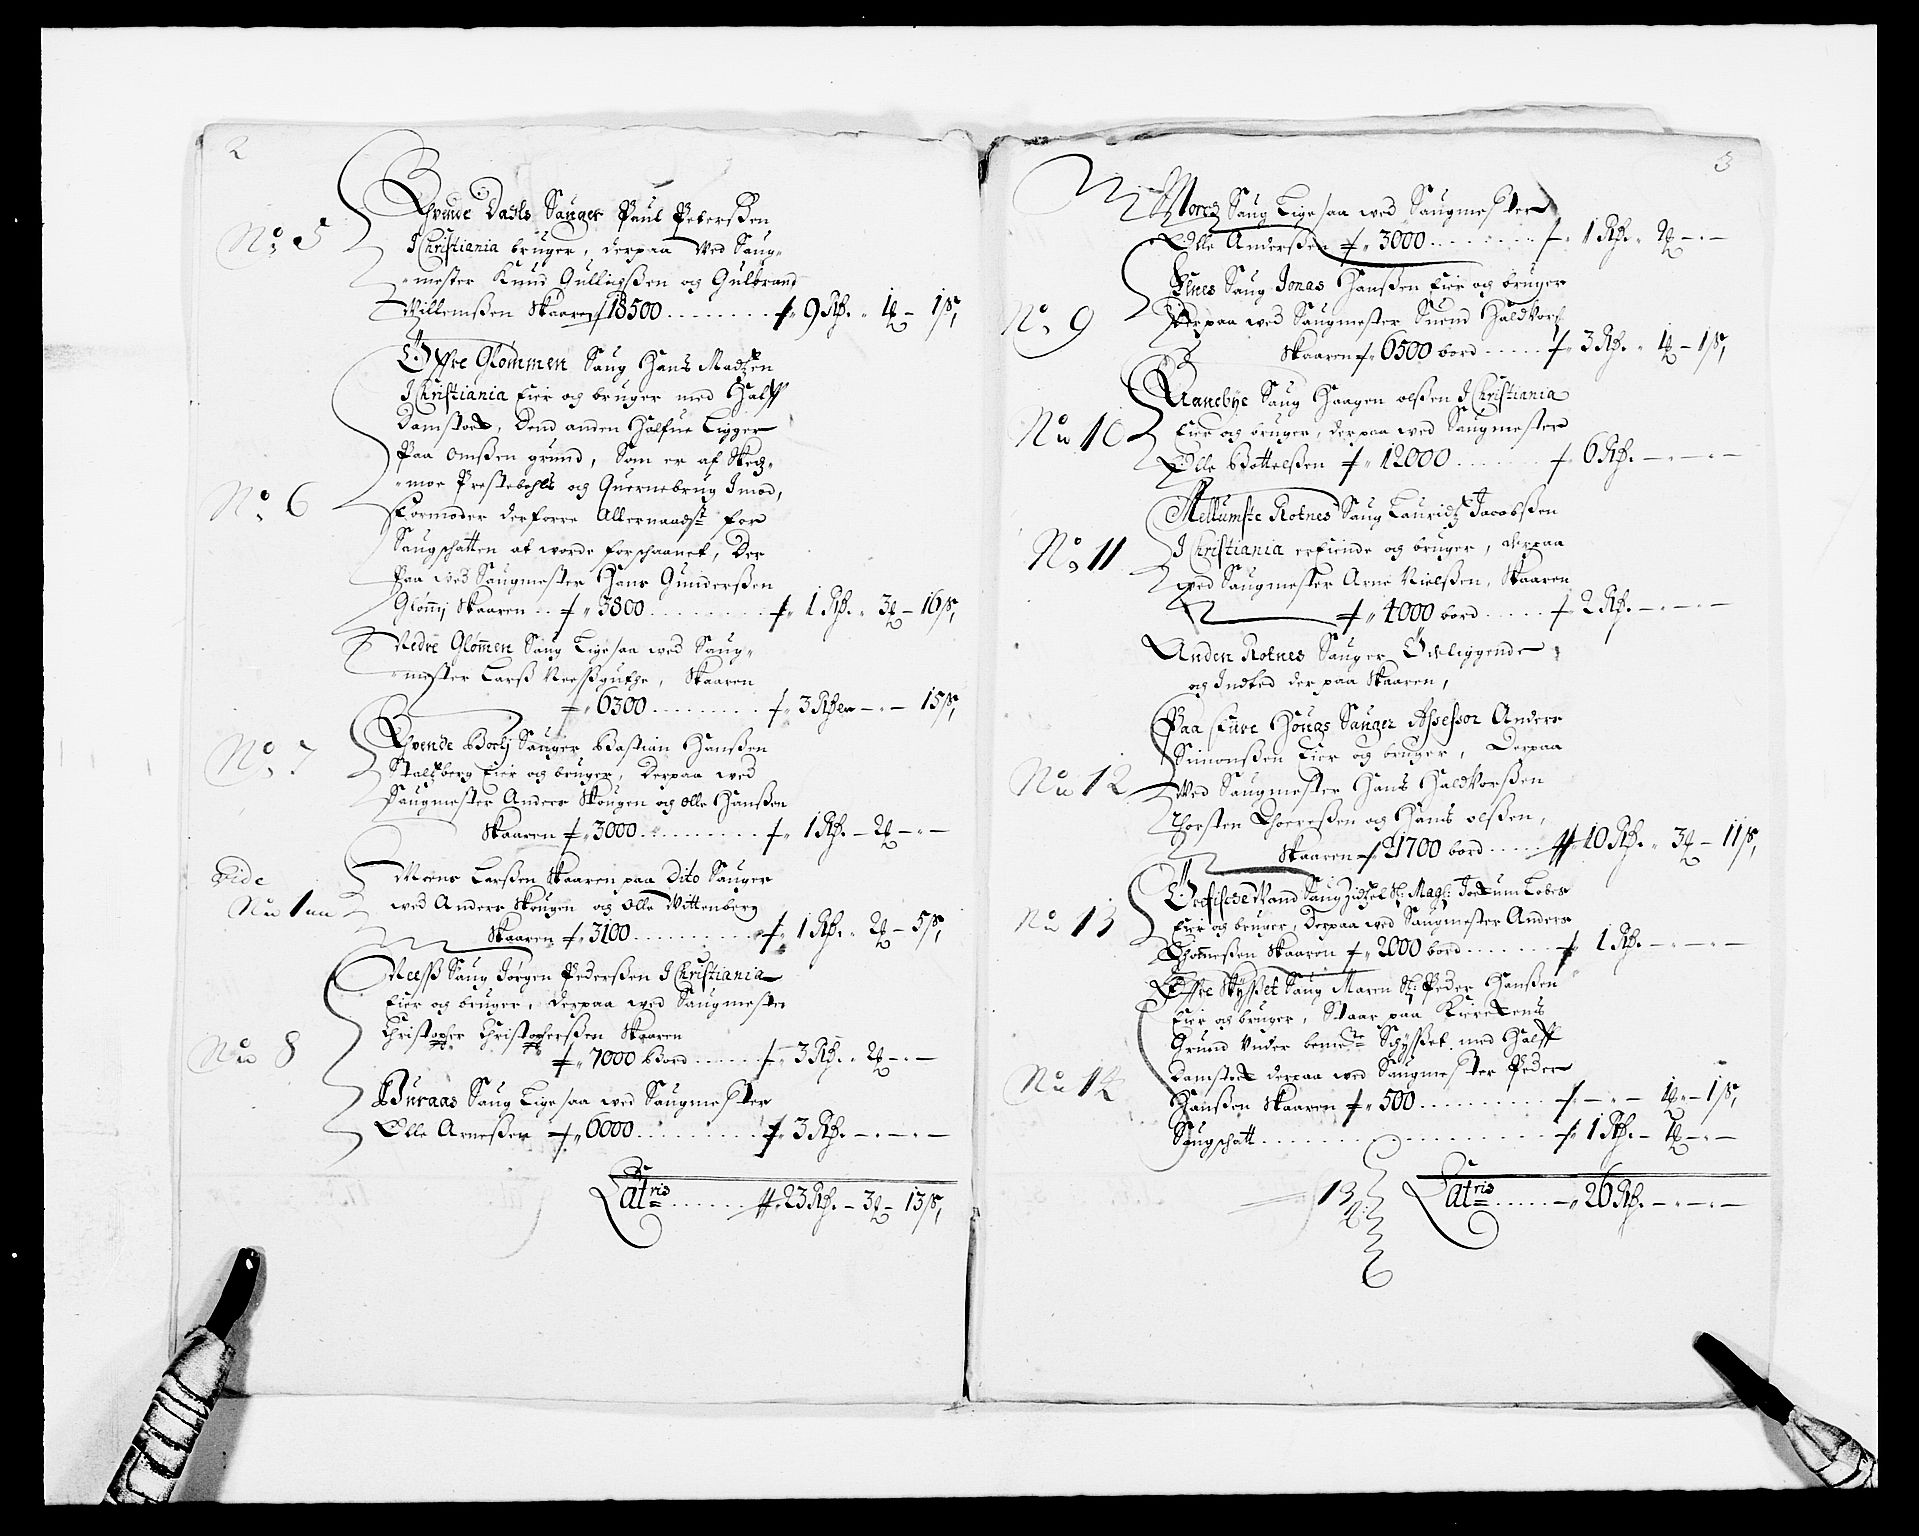 2
No 5
Tvende Dahls Sauger Paul Peterßen
I Christiania bruger, derpaa Ved Saug-
-mester Knud Gulliqßen og Gulbrand
Willemßen Skaaren 18500 9 Rd. 1 — 1 s,
Øffre Glommen Saug Hans Madzen
I Christiania Eier og bruger med Halff
Damstoed, Dend anden Halfue Ligger
Paa Omßen grund, Som er af Skedz-
-moe Prestebohls og Quernebrug Imod,
No 6
Formoder derforre Allernaadst for
Saugschatten at worde forschaanet, Der
Paa wed Saugmester Hans Gunderßen
Glomj Skaaren 3800 1 Rd. 3 — 16 s,
Nedre Glommen Saug Ligesaa wed Saug-
-mester Larß, Skaaren
6300 3 Rd — 15 s,
No 7
Tvende Saugr, Bastian Hanßen
Stalsberg Eier og bruger, Derpaa wed
Saugmester Anders Skougen og Olle Hanßen
Skaaren 3000 1 Rd. — 2 —
Vide
No 1
Mons Larßen Skaaren paa Dito Sauger
wed Anders Skougen og Olle Wittenberg
Skaaren 3100 1 Rd. 2 — 5 s,
No 8
Neeß Saug Jørgen Pederßen I Christiania
Eier og bruger, derpaa wed Saugmester
Christopher Christopherßen Skaaren
7000 Bord 3 Rd. 2 —
Buraas Saug Ligesaa wed Saugmester
Olle Arneßen 6000 3 Rd. —
Latris 23 Rd. — 3 — 13 s,
3
Saug Ligesaa wed Saugmester
Olle Anderßen 3000 1 Rd. 2 —
No 9
Saug Jonas Hanßen Eier og bruger
Derpaa wed Saugmester Suend Haldvorß
Skaaren 6500 bord 3 Rd. 1 — 1 s,
No 10
Raanebye Saug Haagen olßen I Christiania
Eier og bruger, derpaa wed Saugmester
Olle Bottelßen 12000 6 Rd. —
No 11
Mellumste Rotnes Saug Lauridz Jacobßen
I Christiania erfiende og bruger, derpaa
wed Saugmester Arne Nielßen, Skaaren
4000 bord 2 Rd. —
Anden Rotnes Sauger Ødeliggende
og Indted derpaa Skaaren,
No 12
Paa Fure Hougs Sauger Assessor Anders
Simonßen Eier og bruger, Derpaa
Wed Saugmester Hans Haldvorßen
Thorsten og Hans olßen,
Skaaren 21700 bord 10 Rd. 3 — 11 s,
No 13
Saug Sl: Mag: Jokum Lobes
Eier og bruger, Derpaa wed Saugmester Anders
Skaaren 2000 bord 1 Rd. —
No 14
Øffre Skÿsset Saug Maren Sl: Peder Hanßen
Eier og bruger, Staar paa Kierckens
Grund Under bemte Schÿsset med Halff
Damstoed derpaa wed Saugmester Peder
Hanßen Skaaren 500 — 1 — 1 s,
Saugschatt 1 Rd. — 1 —
13
Latris 26 Rd. —